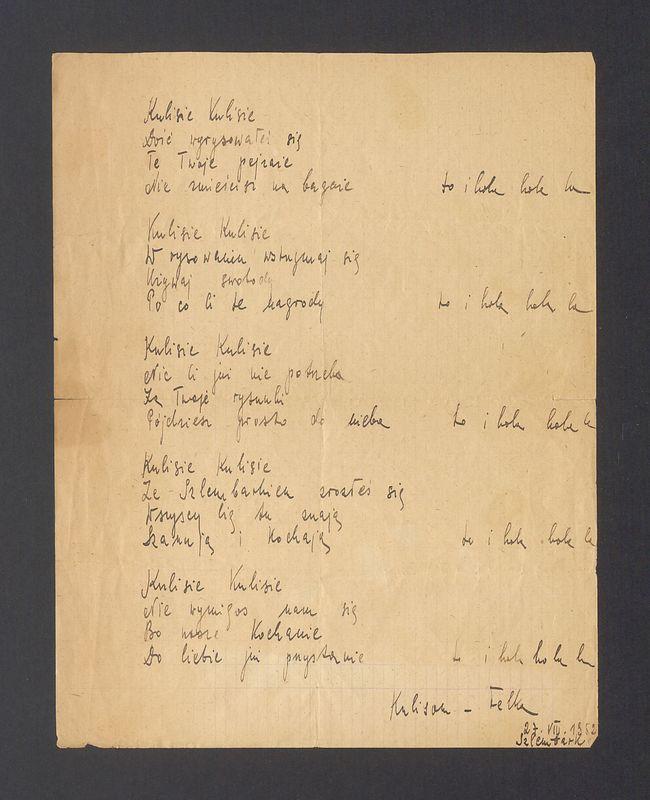 Kulisie Kulisie
Dość wyrysowałeś się
Te Twoje pejzaże
Nie zmieścisz na bagaże to i hola hola la
Kulisie Kulisie
W rysowaniu wstrzymaj się
Używaj swobody
Po co Ci te nagrody to i hola hola la
Kulisie Kulisie
Nic Ci już nie potrzeba
Za Twoje rysunki
Pójdziesz prosto do nieba to i hola hola la
Kulisie Kulisie
Ze Szlembarkiem zrosłeś się
Wszyscy Cię tu znają
Szanują i Kochają to i hola hola la
Kulisie Kulisie
Nie wymigas nam się
Bo nasze Kochanie
Do Ciebie już przystanie to i hola hola la
Kulisom - Felka
27. VII. 1952
Szlembark